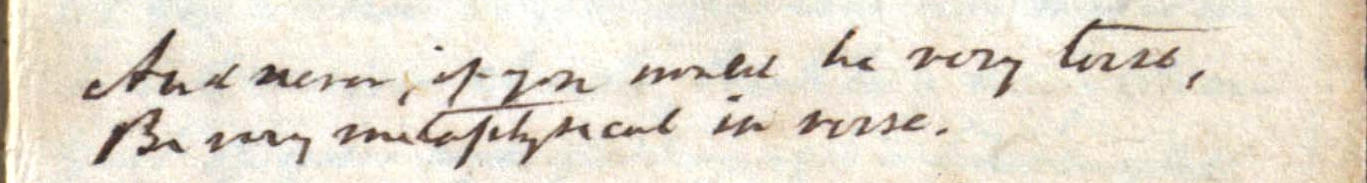 And never, if you would be very terse,
Be very metaphysical in verse.